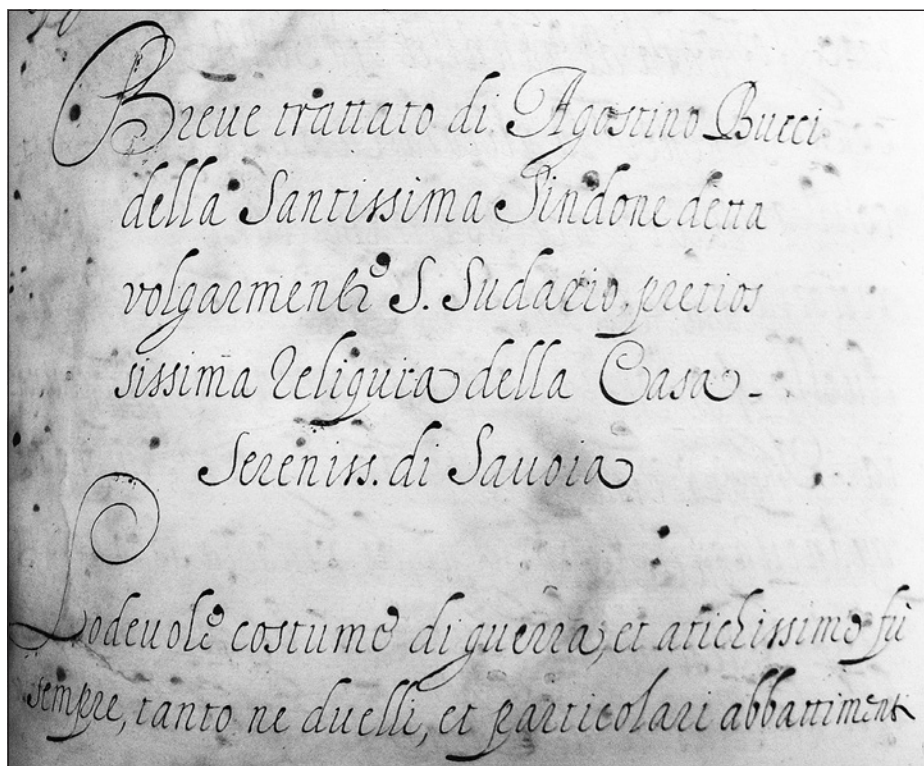 Breue trattato di Agostino Bucci
della Santissima Sindone detta
volgarmente S. Sudario, pretios
sissima Reliquia della Casa -
Sereniss. di Sauoia
Lodeuole costume di guerra, et atichissimo fù
sempre, tanto ne duelli, et particolari abbattimenti